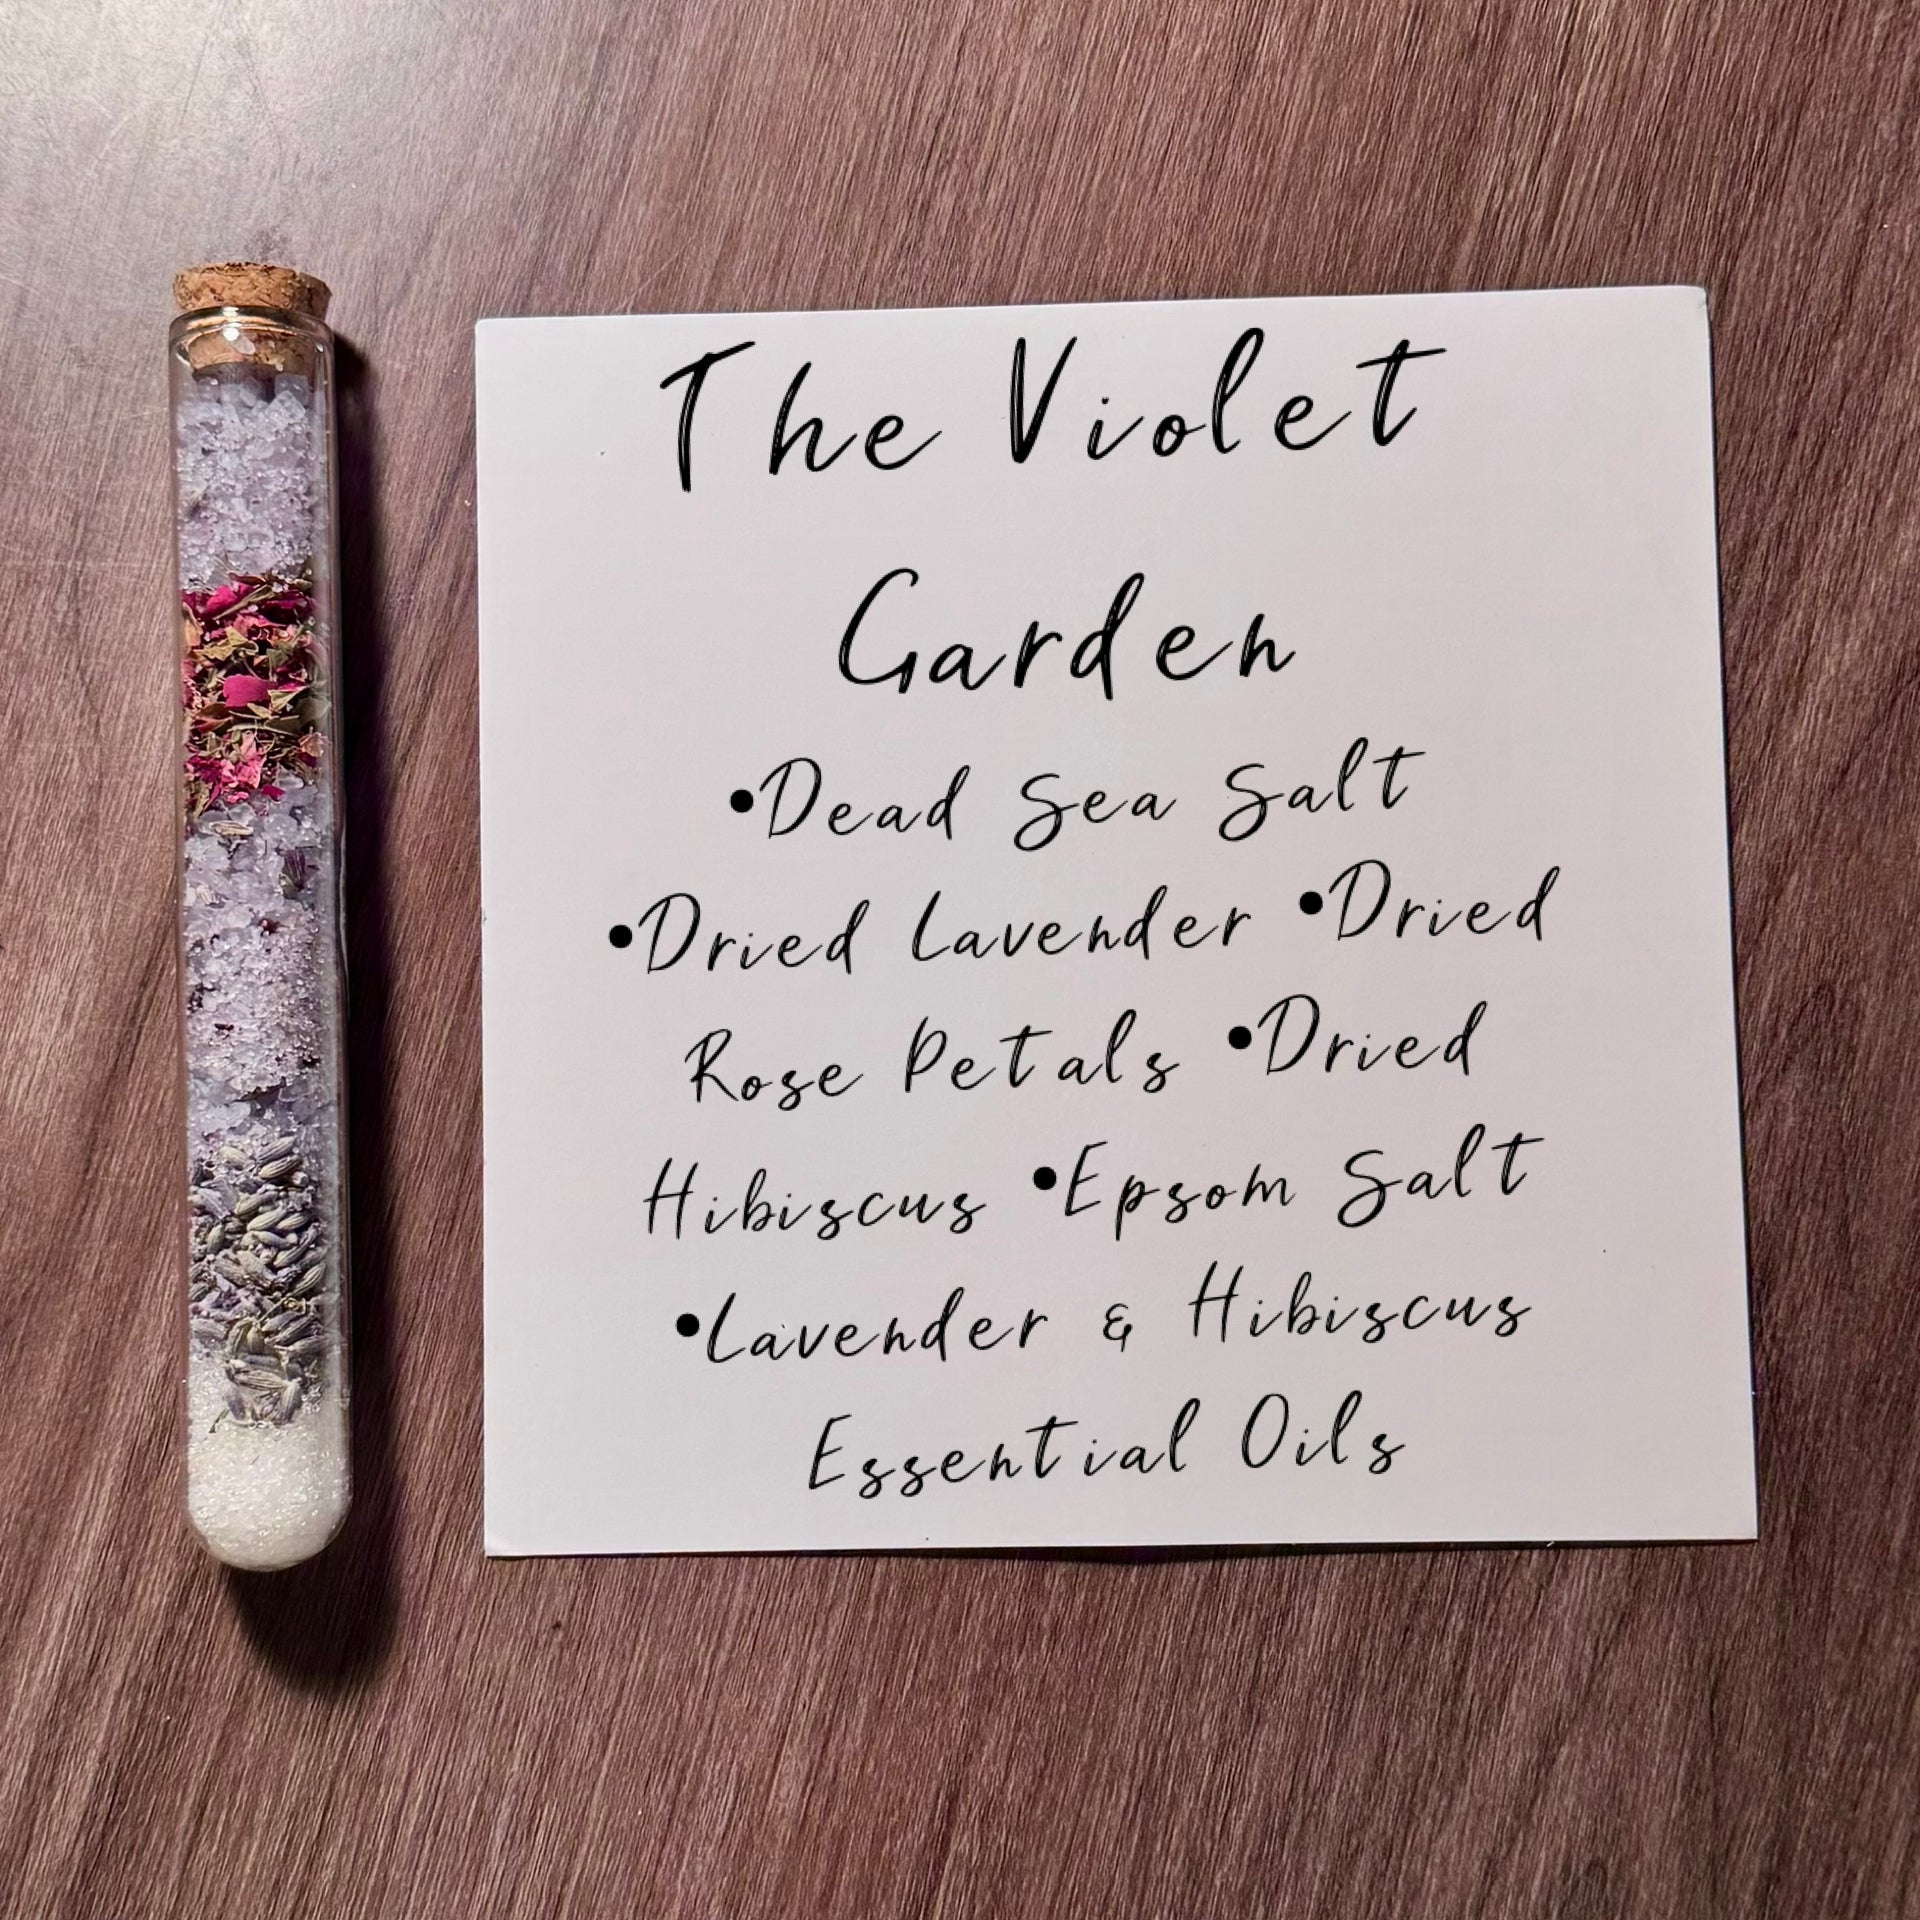 The Violet
Garden
•Dead Sea Salt
•Dried Lavender •Dried
Rose Petals •Dried
Hibiscus •Epsom Salt
•Lavender & Hibiscus
Essential Oils